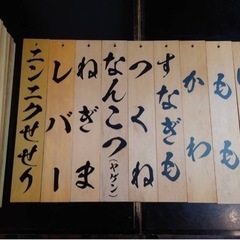 もも
かわ
すなぎも
つくね
なんこつ(ヤゲン)
ねぎま
レバー
ニンニクせせり